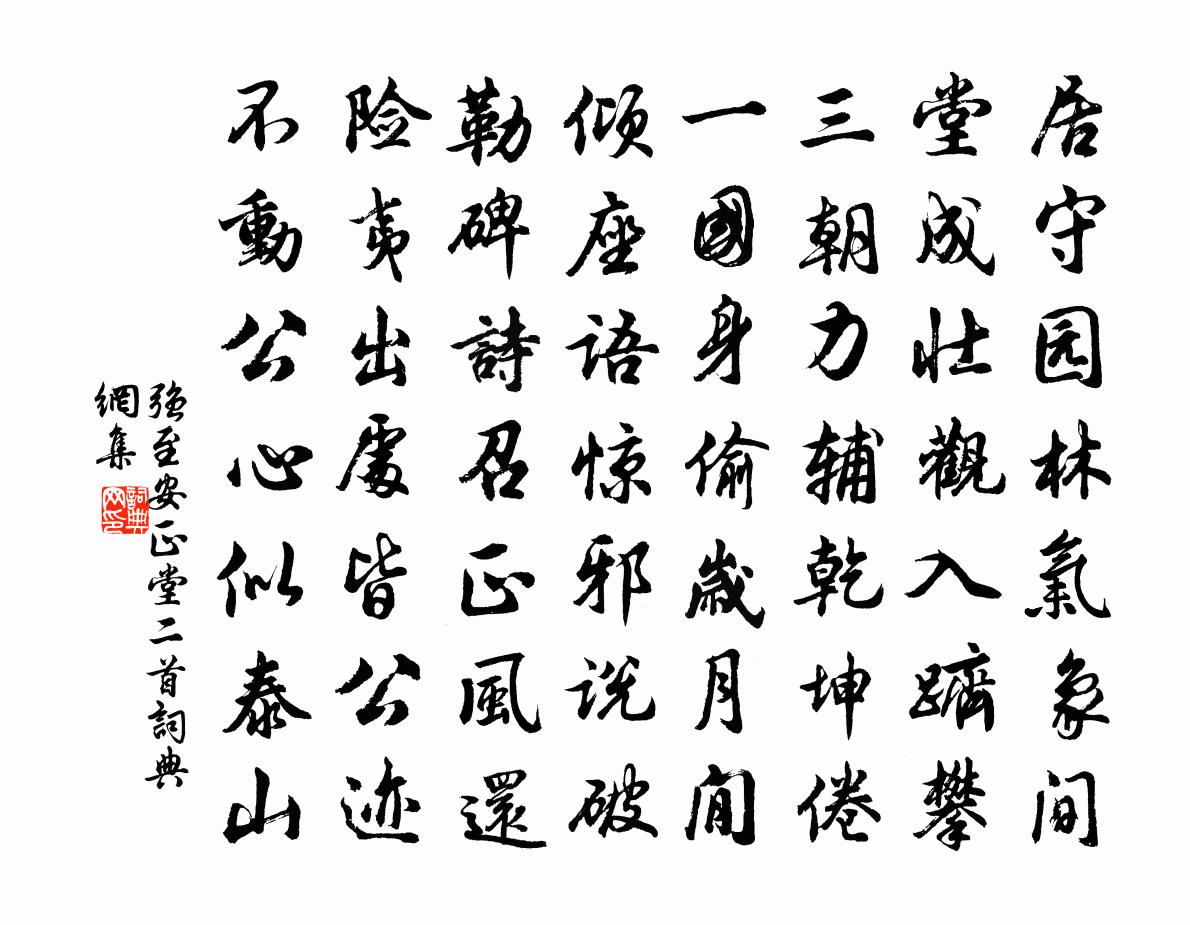 居守园林氣象间
堂成壮觀入躋攀
三朝力辅乾坤倦
一國身偷歲月閒
倾座语惊邪说破
勒碑詩召正風還
险夷出處皆公迹
不動公心似泰山
强至安正堂二首詞典
網集
詞典
网印